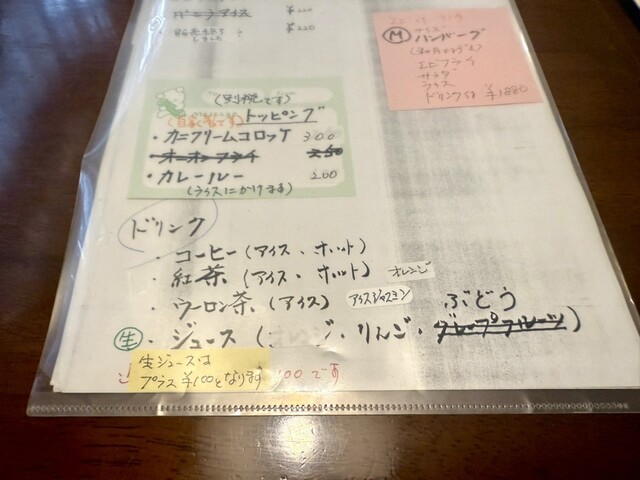 バニラアイス ¥220
販売終了しました ¥220
Ⓜ ハンバーグ
エビフライ
サラダ
ライス
ドリンク付 ¥1880
(別税です)
トッピング
・カニクリームコロッケ 300
・オーオンフライ 250
・カレールー 200
(ライスにかけます)
ドリンク
・コーヒー(アイス、ホット)
・紅茶(アイス、ホット) オレンジ
・ウーロン茶(アイス) アイスジャスミン ぶどう
㊌・ジュース(オレンジ、りんご、グレープフルーツ)
生ジュースは
プラス¥100となります 100です